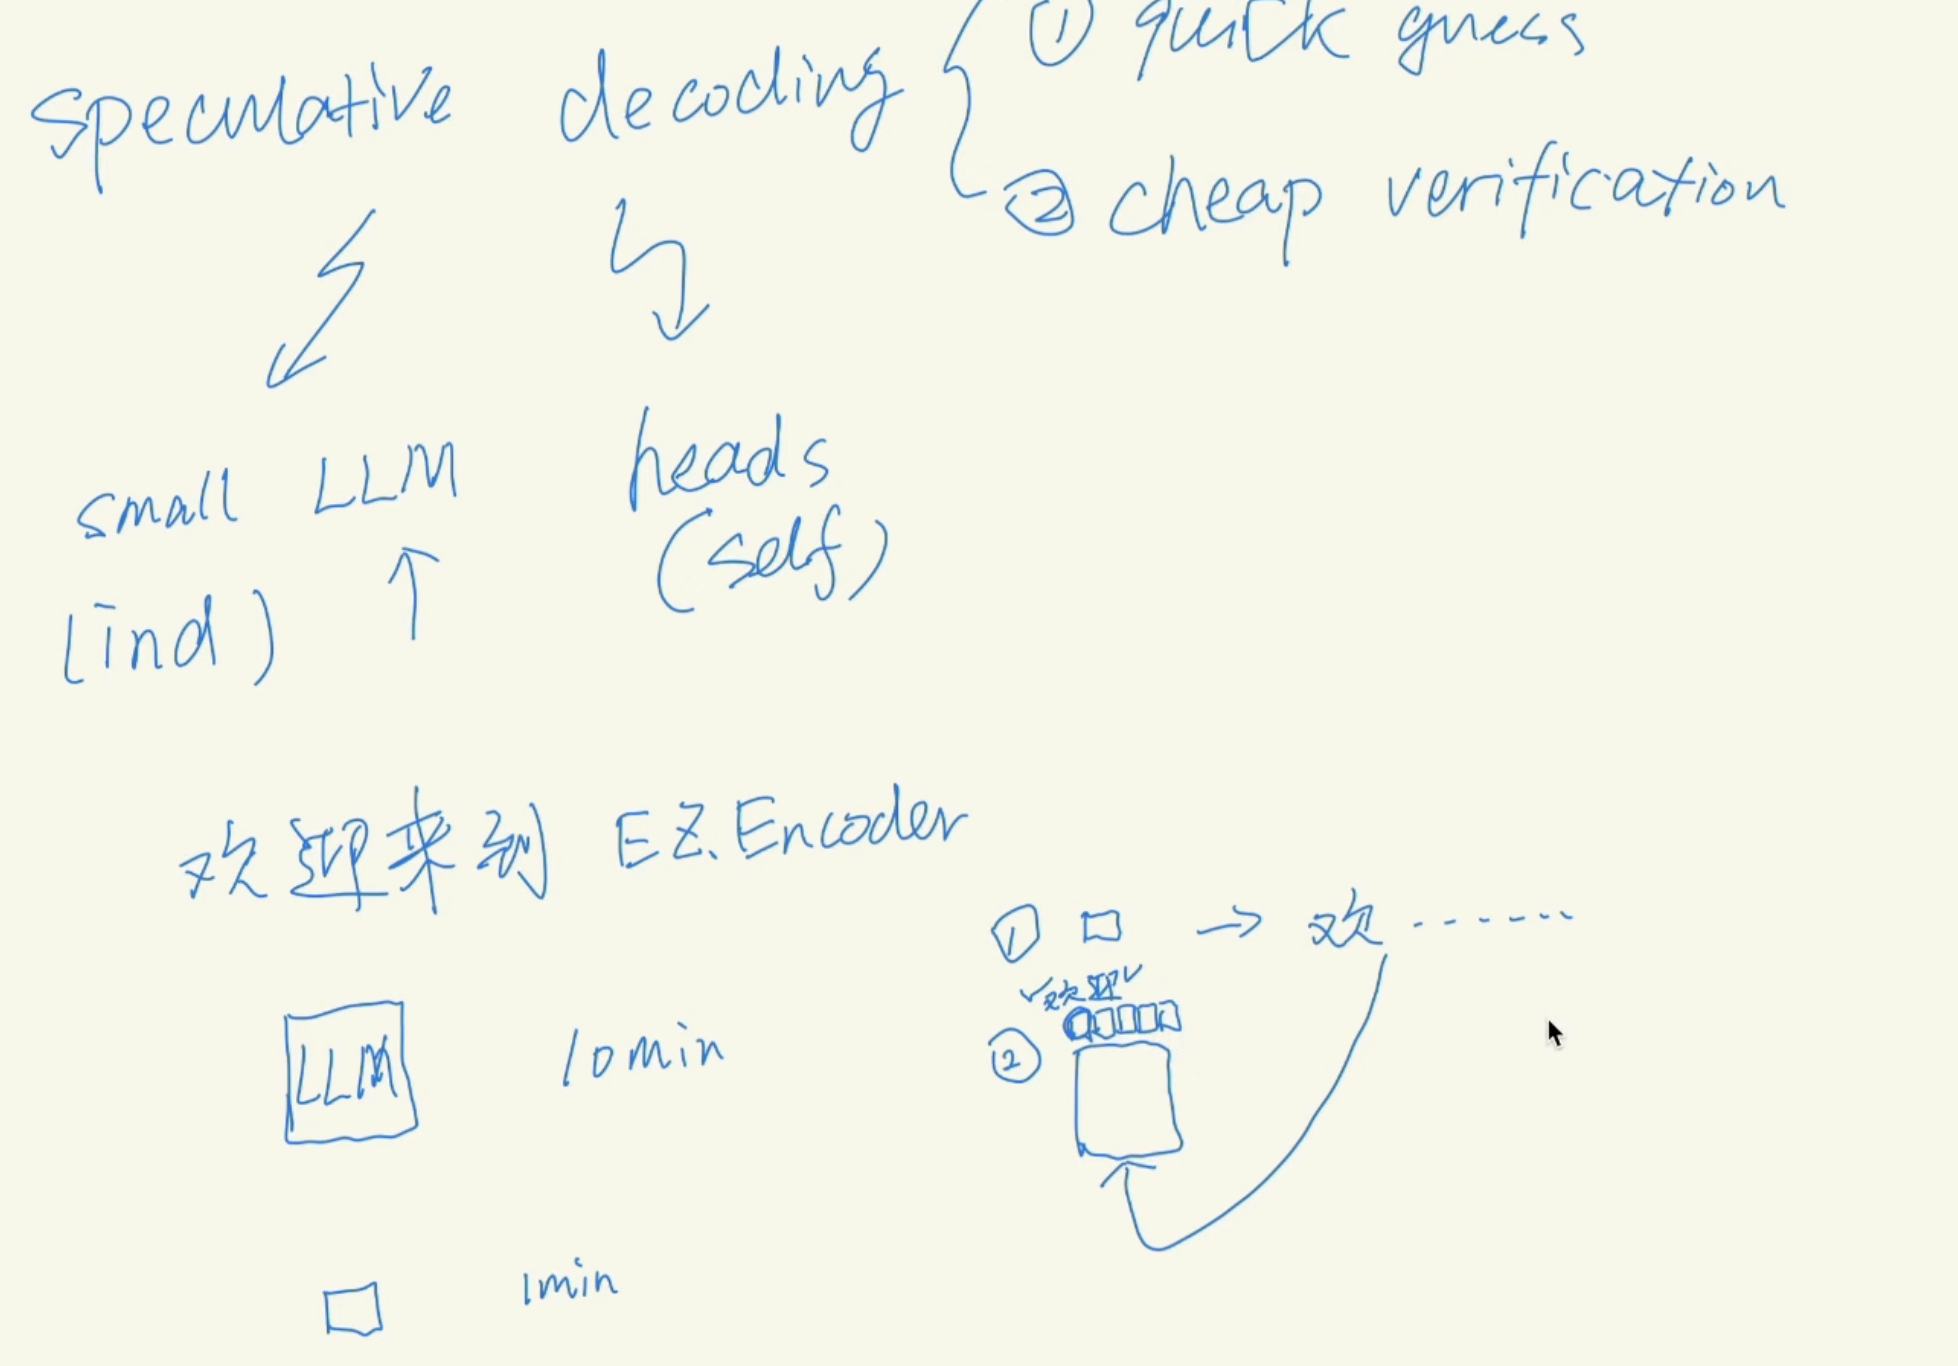 ① quick guess
speculative decoding
② cheap verification
small LLM
heads
(self)
(ind)
欢迎来到 EZ.Encoder
① → 欢 ······
✓欢迎✓
②
LLM
10min
1min